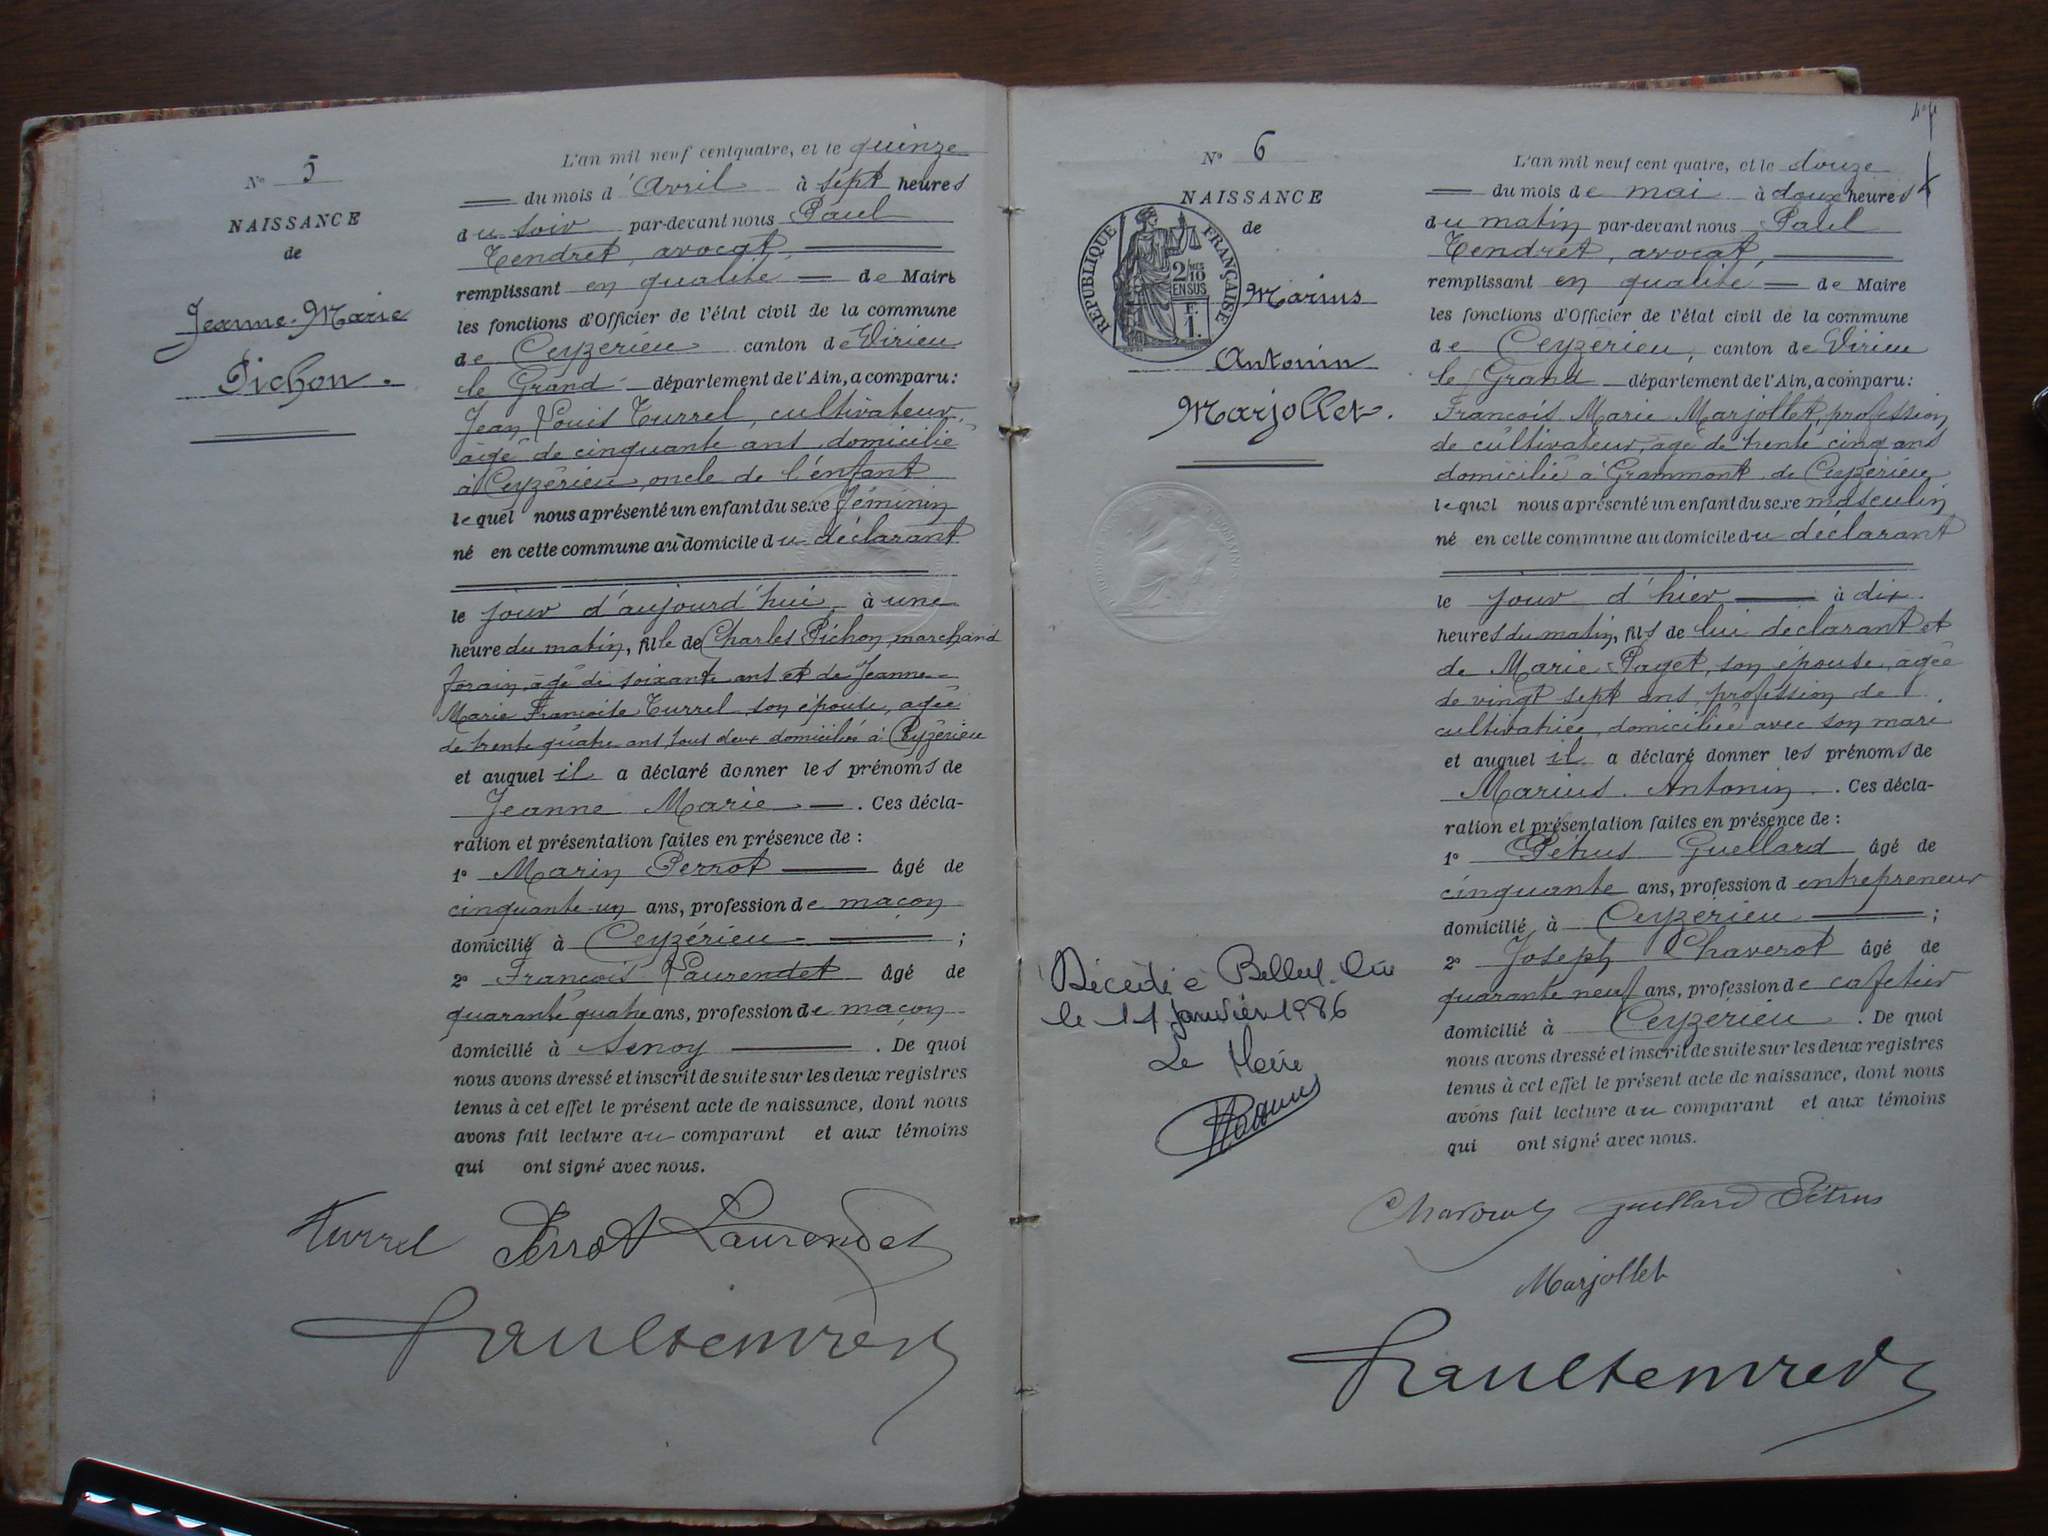 N° 5
NAISSANCE
de
Jeanne-Marie
Pichon.
L'an mil neuf cent quatre, et le quinze
du mois d'Avril à sept heures
du soir par-devant nous Paul
Tendret, avocat,
remplissant en qualité de Maire
les fonctions d'Officier de l'état civil de la commune
de Ceyzérieu canton de Virieu
le Grand département de l'Ain, a comparu:
Jean Louis Turrel, cultivateur,
âgé de cinquante ans domicilié
à Ceyzérieu, oncle de l'enfant
lequel nous a présenté un enfant du sexe féminin
né en cette commune au domicile du déclarant
le jour d'aujourd'hui à une
heure du matin, fille de Charles Pichon, marchand
forain, âgé de soixante ans et de Jeanne-
Marie Françoise Turrel, son épouse, âgée
de trente quatre ans, tous deux domiciliés à Ceyzérieu
et auquel il a déclaré donner les prénoms de
Jeanne Marie. Ces décla-
ration et présentation faites en présence de :
1° Marin Perrot âgé de
cinquante-un ans, profession de maçon
domicilié à Ceyzérieu ;
2° François Laurendet âgé de
quarante quatre ans, profession de maçon
domicilié à Senoy. De quoi
nous avons dressé et inscrit de suite sur les deux registres
tenus à cet effet le présent acte de naissance, dont nous
avons fait lecture au comparant et aux témoins
qui ont signé avec nous.
Turrel Perrot Laurendet
Paul Tendret
N° 6
NAISSANCE
de
Marius
Antonin
Marjollet.
RÉPUBLIQUE FRANÇAISE
2/10 EN SUS
F. 1.
L'an mil neuf cent quatre, et le douze
du mois de mai à deux heures
du matin par-devant nous Paul
Tendret, avocat,
remplissant en qualité de Maire
les fonctions d'Officier de l'état civil de la commune
de Ceyzérieu, canton de Virieu
le Grand département de l'Ain, a comparu:
François Marie Marjollet, profession
de cultivateur, âgé de trente cinq ans
domicilié à Grammont, de Ceyzérieu
lequel nous a présenté un enfant du sexe masculin
né en cette commune au domicile du déclarant
le jour d'hier à dix
heures du matin, fils de lui déclarant et
de Marie Paget, son épouse, âgée
de vingt sept ans, profession de
cultivatrice, domiciliée avec son mari
et auquel il a déclaré donner les prénoms de
Marius Antonin. Ces décla-
ration et présentation faites en présence de :
1° Pétrus Guellard âgé de
cinquante ans, profession d entrepreneur
domicilié à Ceyzérieu ;
2° Joseph Chaverot âgé de
quarante neuf ans, profession de cafetier
domicilié à Ceyzérieu. De quoi
nous avons dressé et inscrit de suite sur les deux registres
tenus à cet effet le présent acte de naissance, dont nous
avons fait lecture au comparant et aux témoins
qui ont signé avec nous.
Décédé à Belley. Ain
le janvier 1986
Le Maire
Chaverot Guellard Pétrus
Marjollet
Paul Tendret